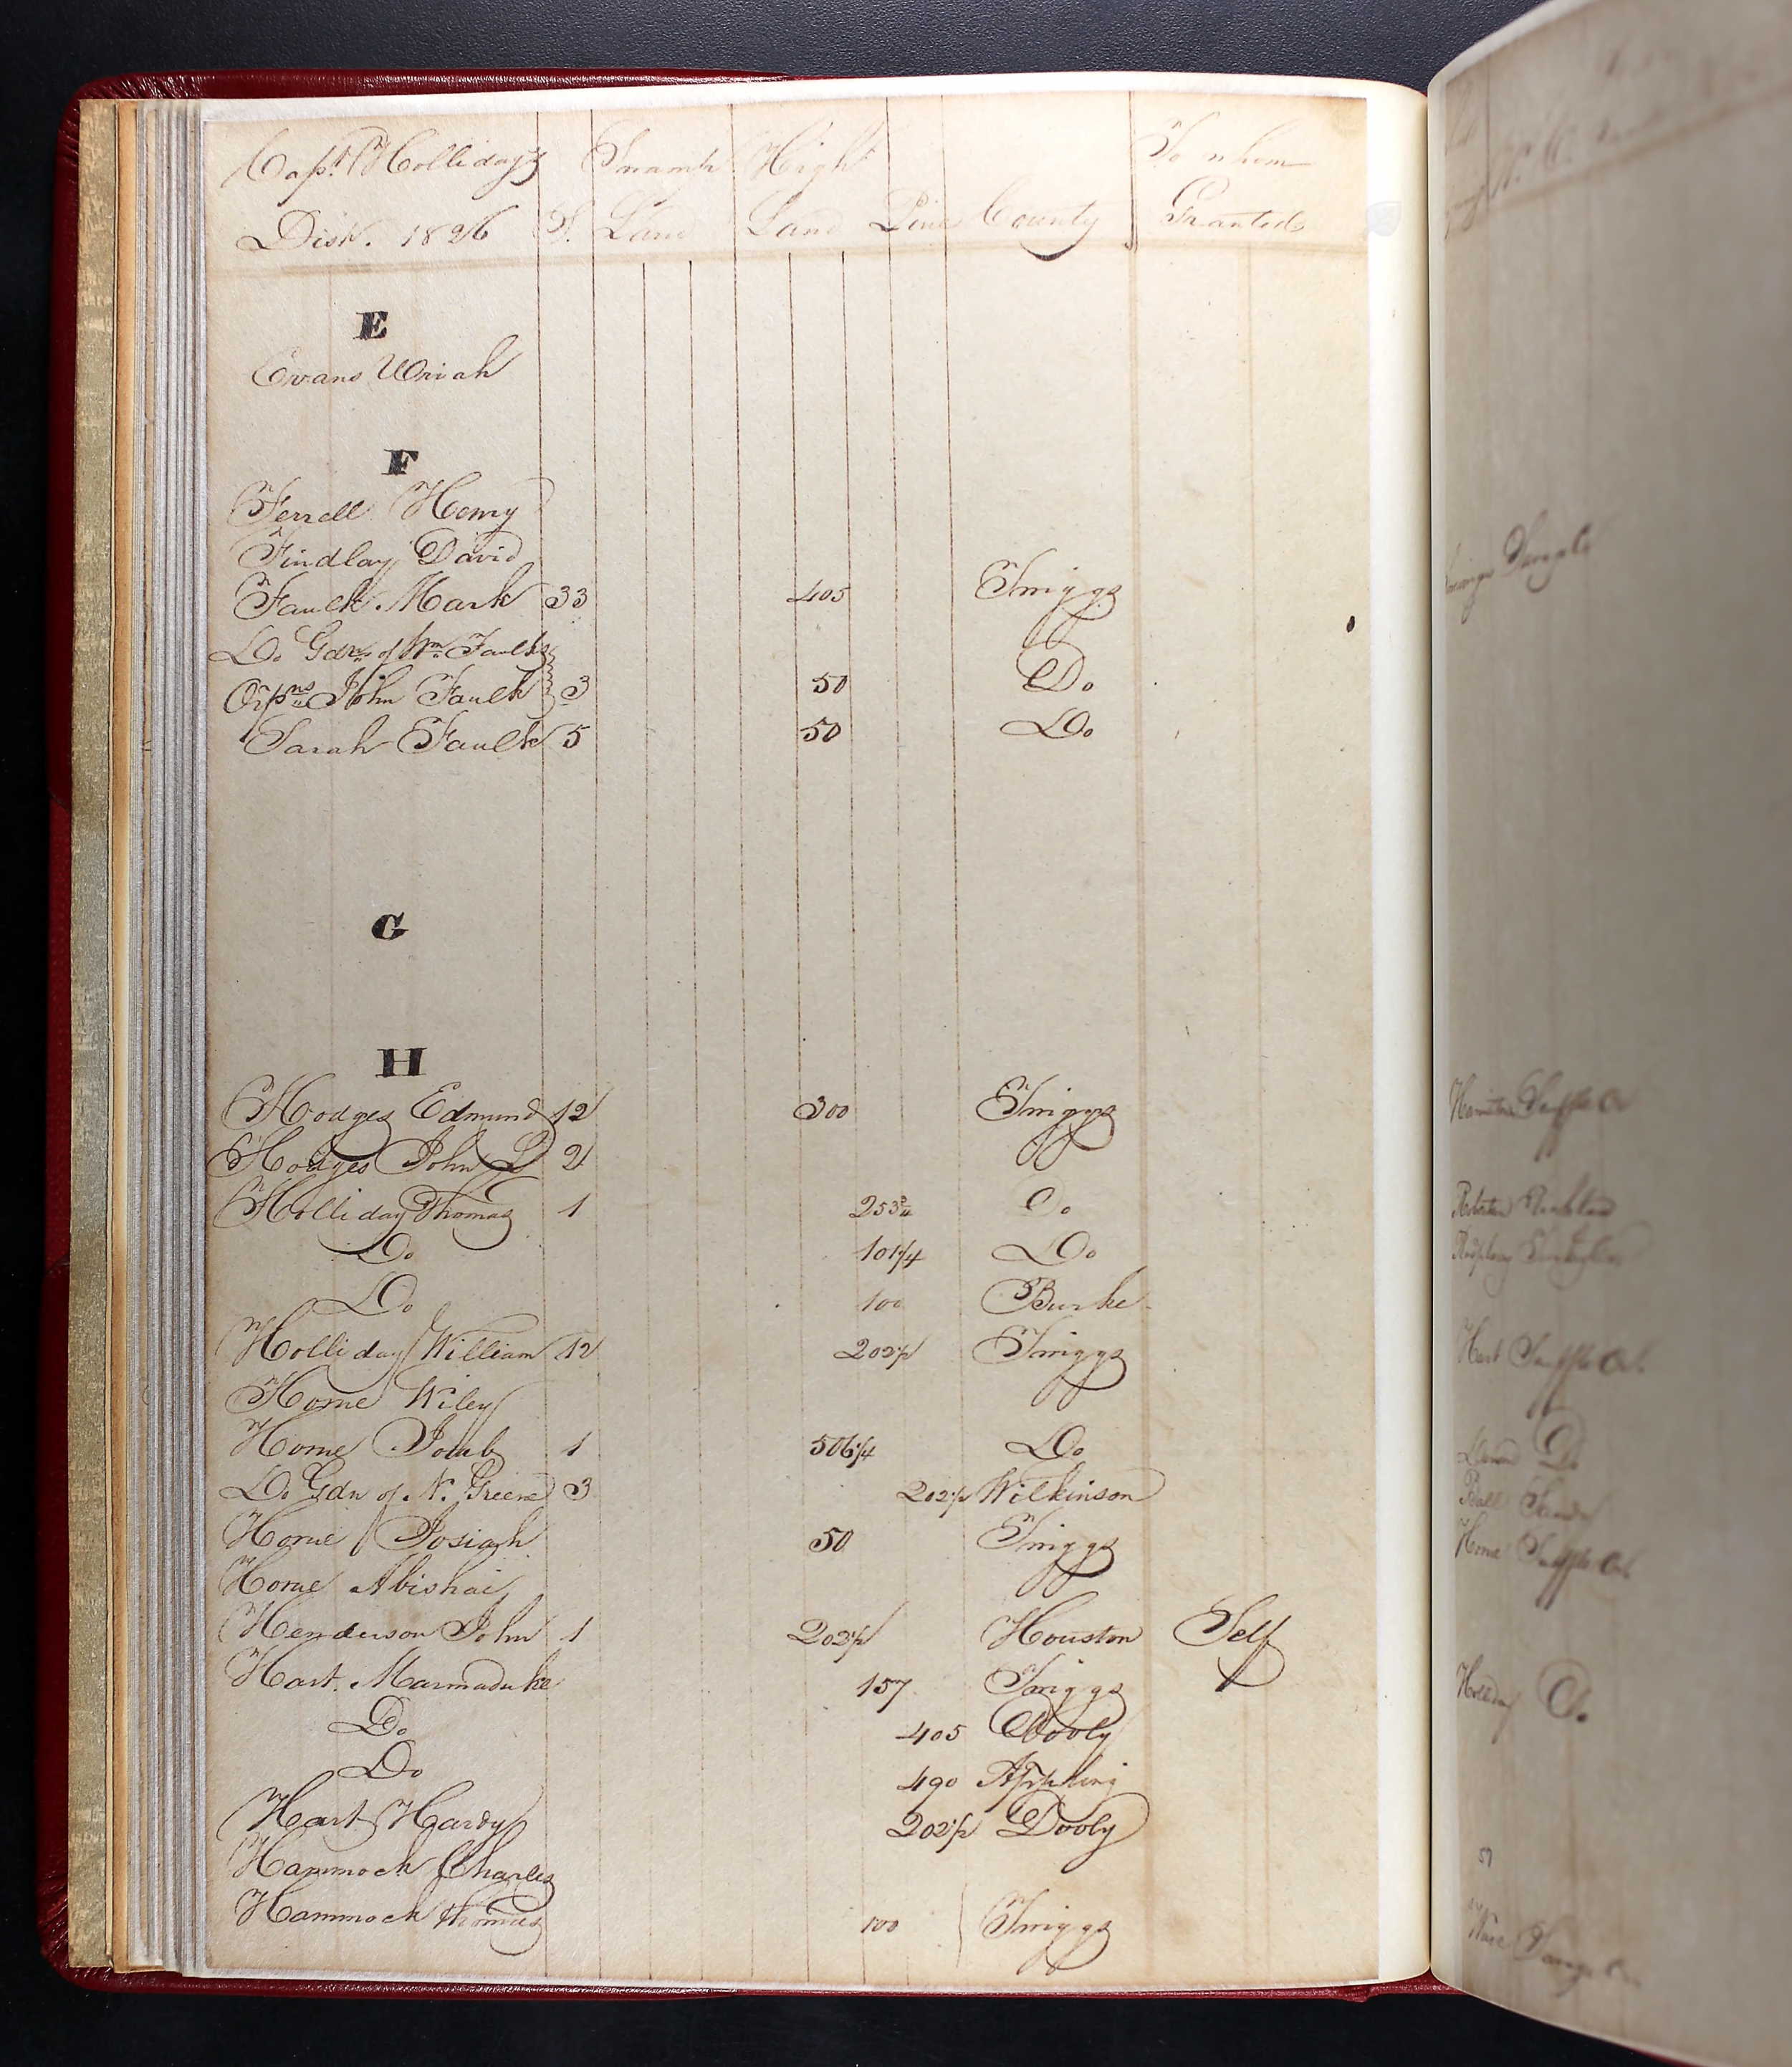 Capt. Hollidays Swamp High To whom
Dist. 1826 S. Land Land Pine County Granted
E
Evans Uriah
F
Ferrell Henry
Findlay David
Faulk Mark 33 405 Twiggs
Do Gdn. of Wm Faulk
Orpns John Faulk 3 50 Do
Sarah Faulk 5 50 Do
G
H
Hodges Edmund 12 300 Twiggs
Hodges John L 2
Holliday Thomas 1 253 3/4 Do
Do 101 1/4 Do
Do 100 Burke
Holliday William 12 202 1/2 Twiggs
Horne Wiley
Horne Joab 1 506 1/4 Do
Do Gdn of N. Greene 3 202 1/2 Wilkinson
Horne Josiah 50 Twiggs
Horne Abishai
Henderson John 1 202 1/2 Houston Self
Hart Marmaduke 157 Twiggs
Do 405 Dooly
Do 490 Appling
Hart Hardy 202 1/2 Dooly
Hammock Charles
Hammock Thomas 100 Twiggs